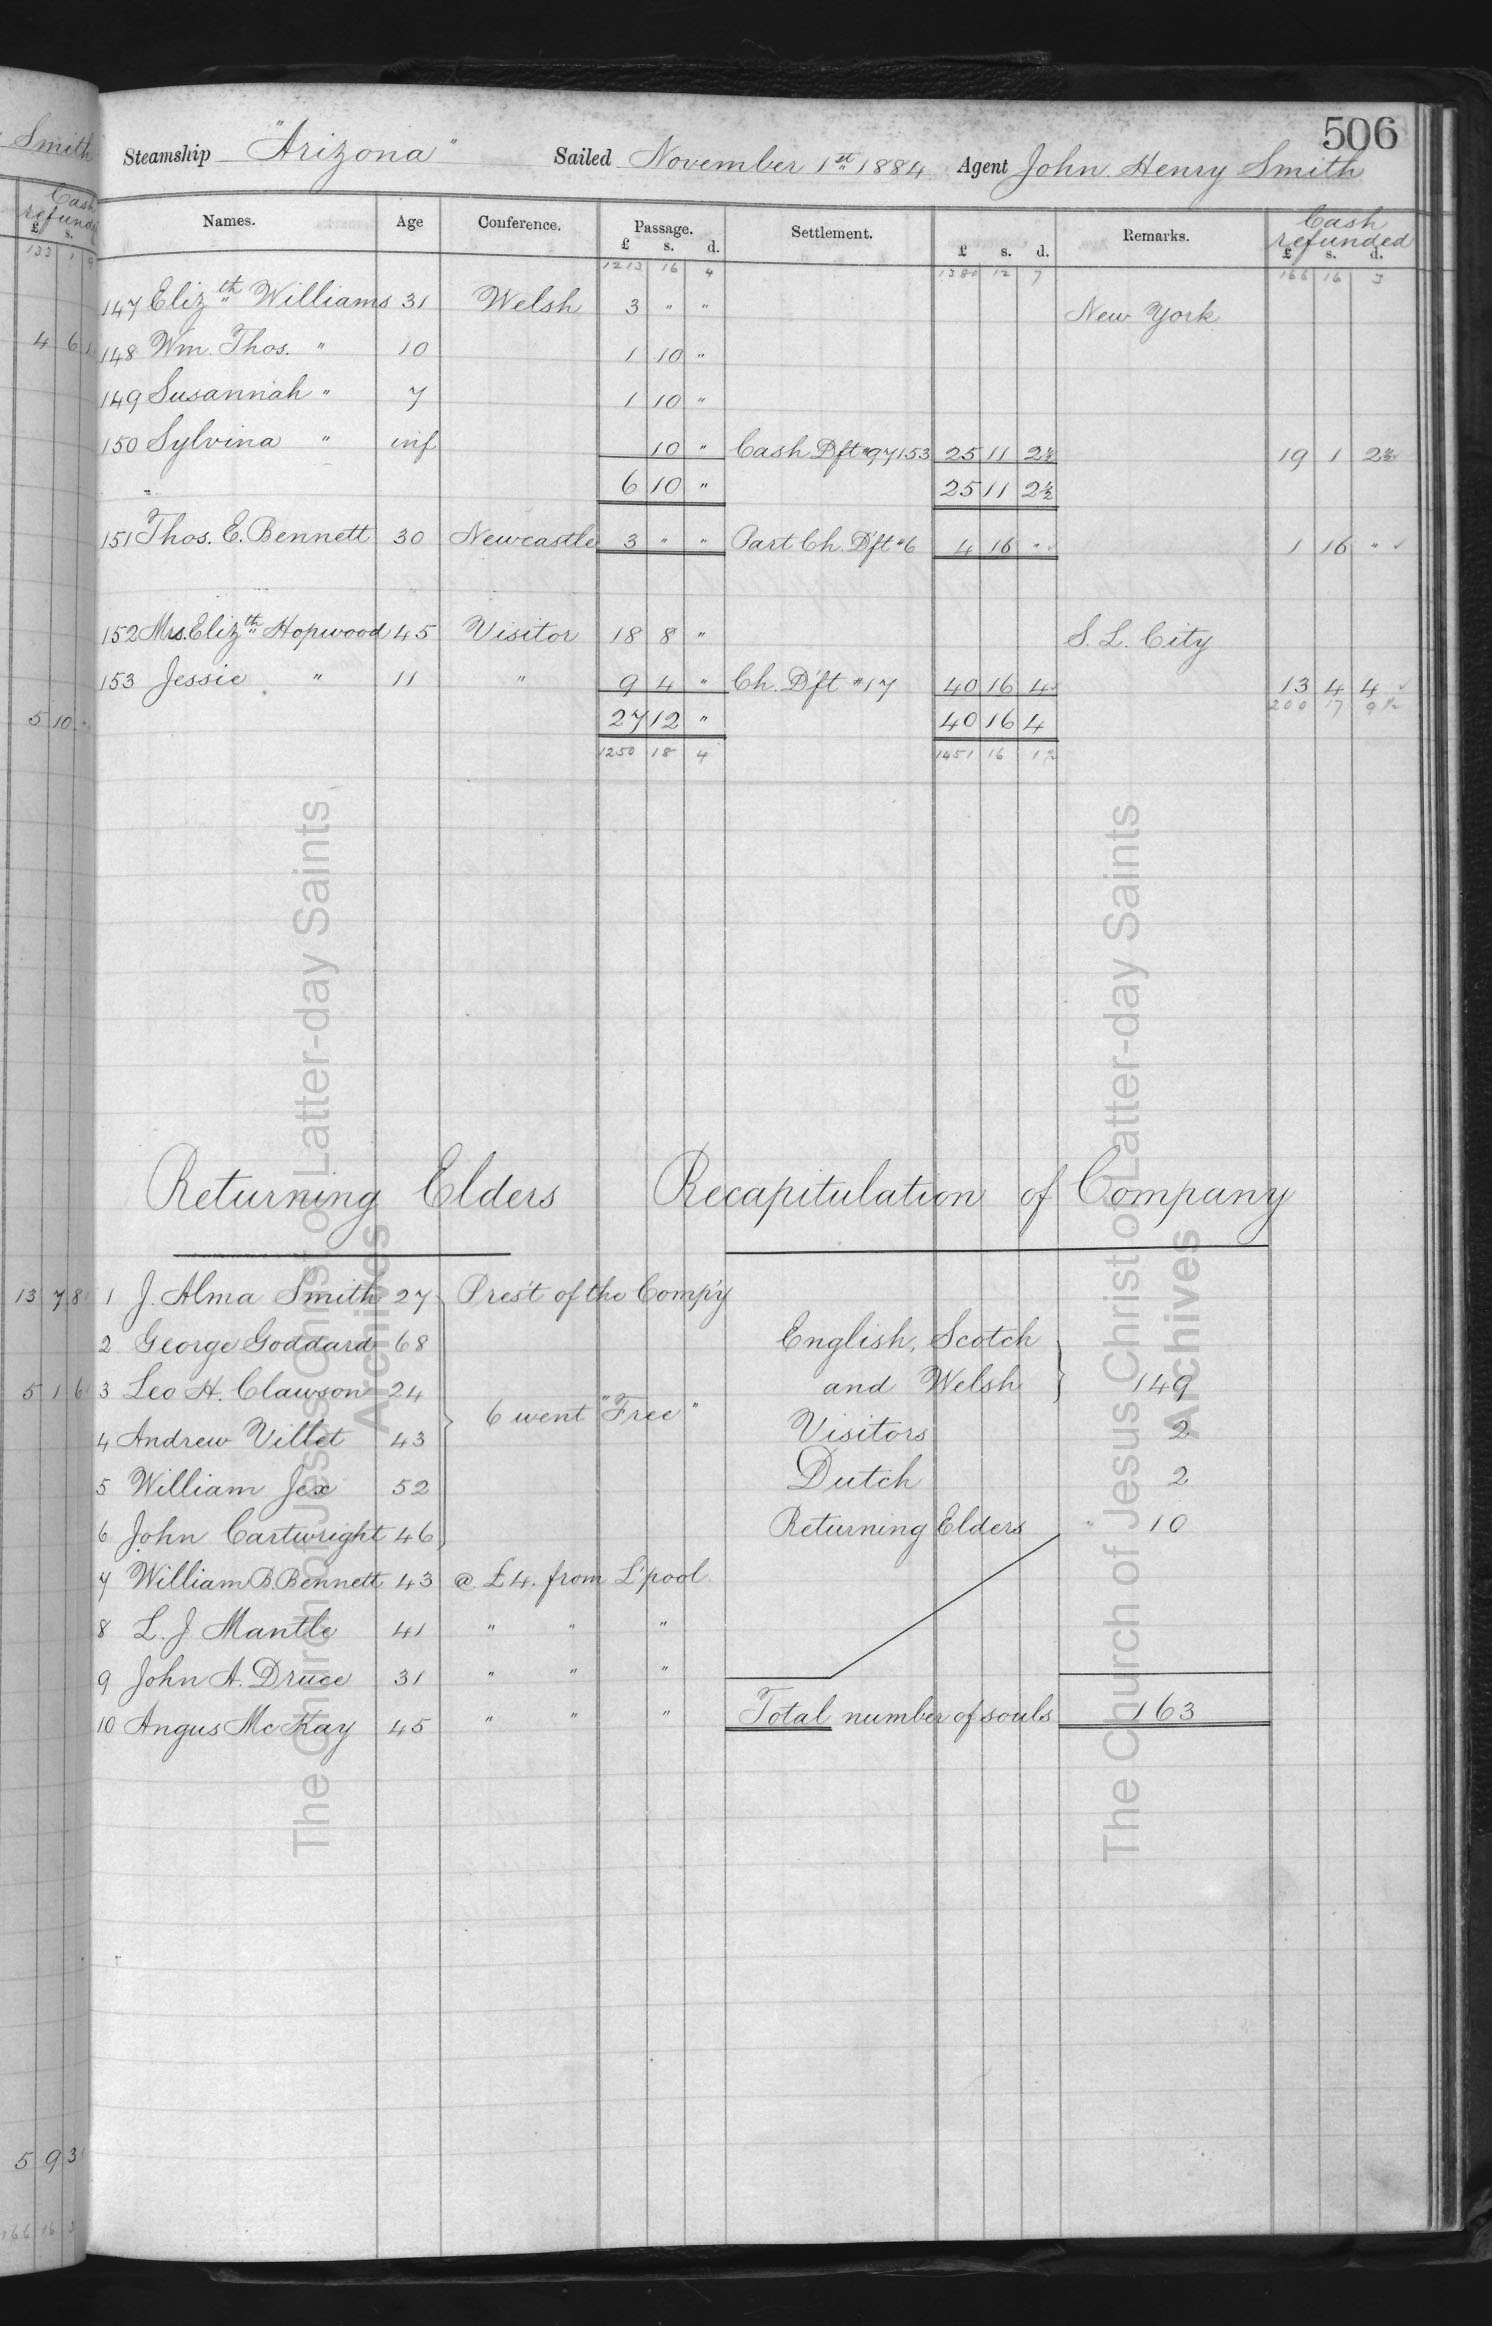 506
Steamship "Arizona" Sailed November 1st 1884 Agent John Henry Smith
Names. Age Conference. Passage. Settlement. Remarks. Cash refunded
£ s. d. £ s. d. £ s. d.
1213 16 4 1380 12 7 166 16 3
147 Elizth Williams 31 Welsh 3 " " New York
148 Wm. Thos. " 10 1 10 "
149 Susannah " 7 1 10 "
150 Sylvina " inf 10 " Cash Dft #97153 25 11 2½ 19 1 2½
6 10 " 25 11 2½
151 Thos. E. Bennett 30 Newcastle 3 " " Part Ch. D'ft #6 4 16 " 1 16 "
152 Mrs. Elizth Hopwood 45 Visitor 18 8 " S. L. City
153 Jessie " 11 " 9 4 " Ch. D'ft #17 40 16 4 13 4 4
200 17 9½
27 12 " 40 16 4
1250 18 4 1451 16 1½
Returning Elders Recapitulation of Company
1 J. Alma Smith 27 Pres't of the Comp'y
2 George Goddard 68 English, Scotch
3 Leo H. Clawson 24 and Welsh } 149
4 Andrew Villet 43 } 6 went "Free" Visitors 2
5 William Jex 52 Dutch 2
6 John Cartwright 46 Returning Elders " 10
7 William B. Bennett 43 @ £4. from L'pool
8 L. J Mantle 41 " " "
9 John A. Druce 31 " " "
10 Angus McKay 45 " " " Total number of souls 163
Smith
Cash refunde
£ s.
133 1 9
4 6
5 10
13 7 8
5 1 6
5 9 3
166 16 3
The Church of Jesus Christ of Latter-day Saints
Archives
The Church of Jesus Christ of Latter-day Saints
Archives